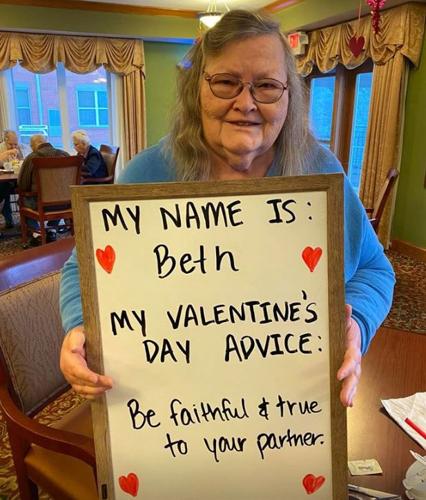 MY NAME IS:
Beth
MY VALENTINE'S
DAY ADVICE:
Be faithful & true
to your partner.